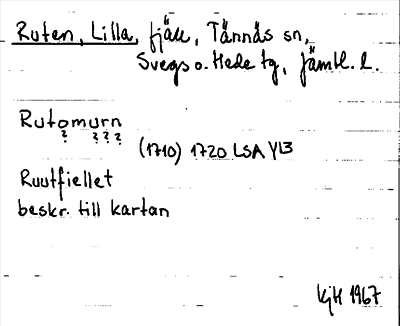 Ruten, Lilla, fjäll, Tännäs sn,
Svegs o. Hede tg, Jämtl. l.
Rutomurn
? ? ? ?
(1710) 1720 LSA Y L3
Ruutfiellet
beskr. till kartan
KjH 1967